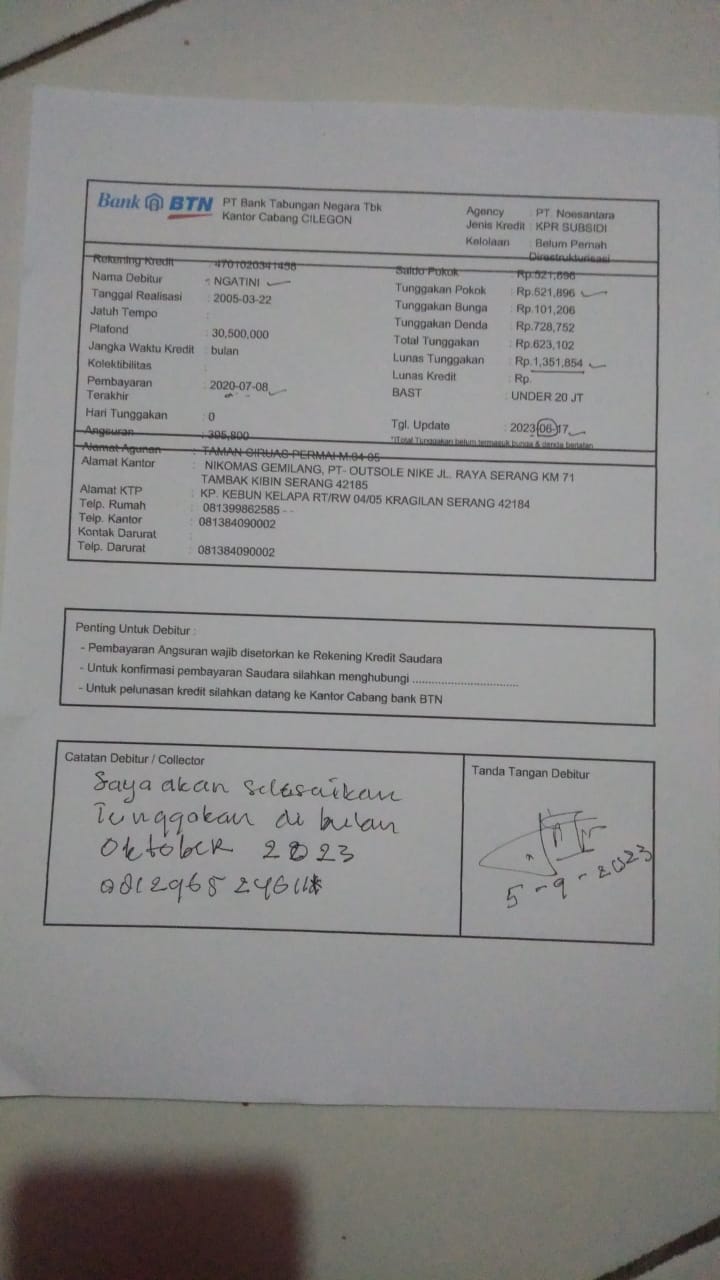 Bank BTN PT Bank Tabungan Negara Tbk
Kantor Cabang CILEGON
Agency : PT. Noesantara
Jenis Kredit : KPR SUBSIDI
Kelolaan : Belum Pernah
Direstrukturisasi
Rekening Kredit : 4701020341458
Nama Debitur : NGATINI
Tanggal Realisasi : 2005-03-22
Jatuh Tempo :
Plafond : 30,500,000
Jangka Waktu Kredit : bulan
Kolektibilitas :
Pembayaran Terakhir : 2020-07-08
Hari Tunggakan : 0
Angsuran : 305,800
Saldo Pokok : Rp.521,896
Tunggakan Pokok : Rp.521,896
Tunggakan Bunga : Rp.101,206
Tunggakan Denda : Rp.728,752
Total Tunggakan : Rp.623,102
Lunas Tunggakan : Rp.1,351,854
Lunas Kredit : Rp.
BAST : UNDER 20 JT
Tgl. Update : 2023-06-17
*)Total Tunggakan belum termasuk bunga & denda berjalan
Alamat Agunan : TAMAN CIRUAS PERMAI M 04 05
Alamat Kantor : NIKOMAS GEMILANG, PT- OUTSOLE NIKE JL. RAYA SERANG KM 71
TAMBAK KIBIN SERANG 42185
Alamat KTP : KP. KEBUN KELAPA RT/RW 04/05 KRAGILAN SERANG 42184
Telp. Rumah : 081399862585 - -
Telp. Kantor : 081384090002
Kontak Darurat :
Telp. Darurat : 081384090002
Penting Untuk Debitur :
- Pembayaran Angsuran wajib disetorkan ke Rekening Kredit Saudara
- Untuk konfirmasi pembayaran Saudara silahkan menghubungi ................................
- Untuk pelunasan kredit silahkan datang ke Kantor Cabang bank BTN
Catatan Debitur / Collector
Saya akan selesaikan
Tunggakan di bulan
Oktober 2023
Tanda Tangan Debitur
5-9-2023